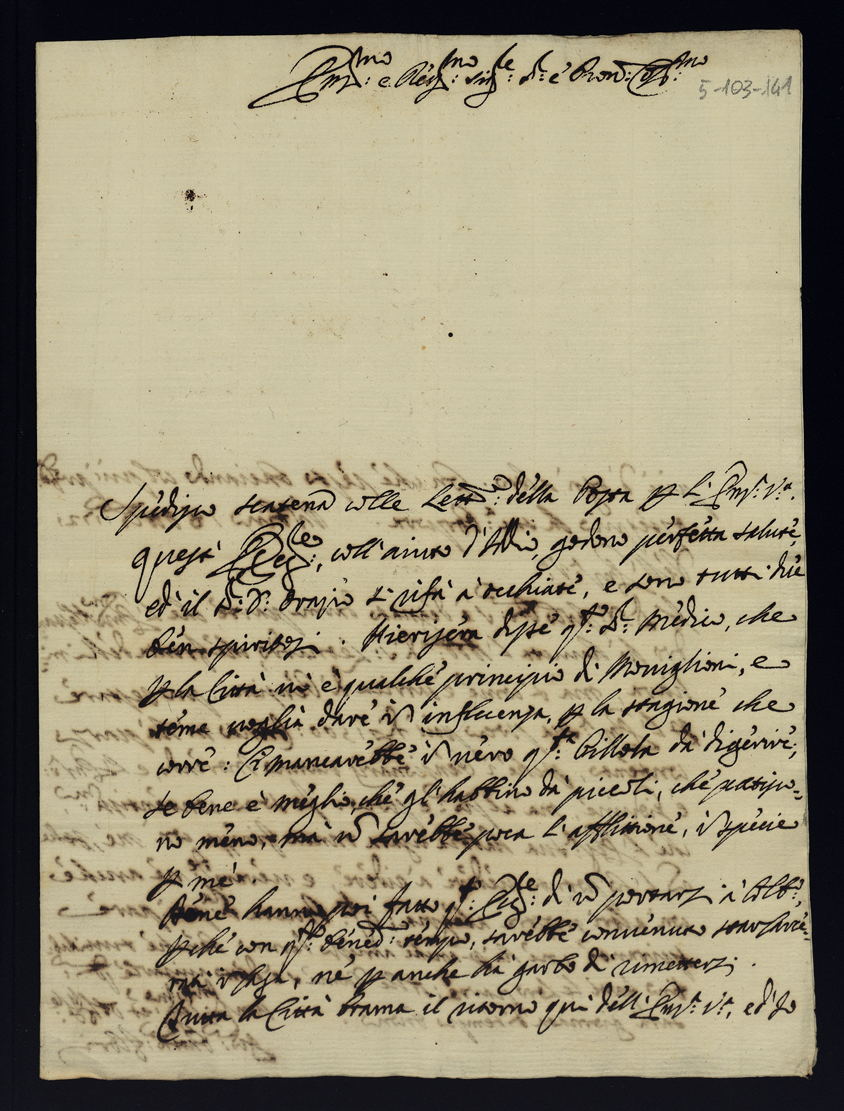 Em.mo e Rev.mo Sig.re S.r e Pron: Col.mo
5-103-141
Spedisco stasera colle Lett.e della Posta p l'Em.a V.a.
queste, coll'aiuto d'Iddio, godono perfetta salute,
ed il S.r D. Orazio si rifà a occhiate, e sono tutti due
ben spiritosi. Hierisera disse q.to S.r Medico, che
p la Città vi è qualche principio di Moviglioni, e
teme voglia dare in influenza, p la stagione che
corre: Ci mancarebbe in vero q.ta Pillola da digerire;
se bene è meglio, che gl'habbino da piccoli, che patisco=
no meno, mà non sarebbe poca l'afflizione, in specie
p me.
Bene hanno poi fatto di non portarsi à Alb.o,
p che con q.to bened.o tempo, sarebbe convenuto star serre=
né p anche hà garbo di rimettersi.
Tutta la Città brama il ritorno qui dell'Em.a V.a, ed io